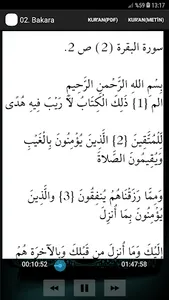 %59 13:17
02. Bakara
KUR'AN(PDF)
KUR'AN(METİN)
سورة البقرة ( 2 ) ص 2.
بِسْمِ اللهِ الرَّحْمنِ الرَّحِيمِ
الم {1} ذَلِكَ الْكِتَابُ لاَ رَيْبَ فِيهِ هُدًى
لِّلْمُتَّقِينَ {2} الَّذِينَ يُؤْمِنُونَ بِالْغَيْبِ
وَيُقِيمُونَ الصَّلاةَ
وَمِمَّا رَزَقْنَاهُمْ يُنفِقُونَ {3} والَّذِينَ
يُؤْمِنُونَ بِمَا أُنزِلَ
إِلَيْكَ وَمَا أُنزِلَ مِن قَبْلِكَ وَبِالآخِرَةِ هُمْ
00:10:52
01:47:58